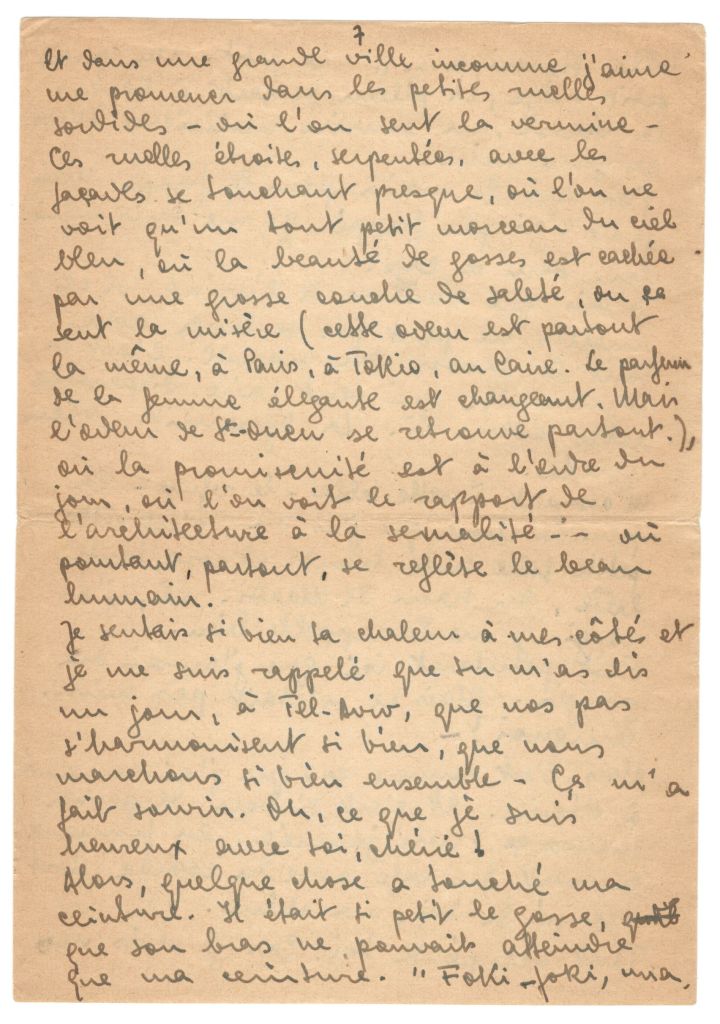 7
Et dans une grande ville inconnue j'aime
me promener dans les petites ruelles
sordides – où l'on sent la vermine –
Ces ruelles étroites, serpentées, avec les
façades se touchant presque, où l'on ne
voit qu'un tout petit morceau du ciel
bleu, où la beauté de gosses est cachée
par une grosse couche de saleté, ou ça
sent la misère (cette odeur est partout
la même, à Paris, à Tokio, au Caire. Le parfum
de la femme élegante est changeant. Mais
l'odeur de St-Ouen se retrouve partout.),
où la promiscuité est à l'ordre du
jour, où l'on voit le rapport de
l'architecture à la sexualité -- où
pourtant, partout, se reflète le beau
humain.
Je sentais si bien ta chaleur à mes côtés et
je me suis rappelé que tu m'as dis
un jour, à Tel-Aviv, que nos pas
s'harmonisent si bien, que nous
marchons si bien ensemble – Ça m'a
fait sourir. Oh, ce que je suis
heureux avec toi, chérie!
Alors, quelque chose a touché ma
ceinture. Il était si petit le gosse,
que son bras ne pouvait atteindre
que ma ceinture. "Foki-joki, una,